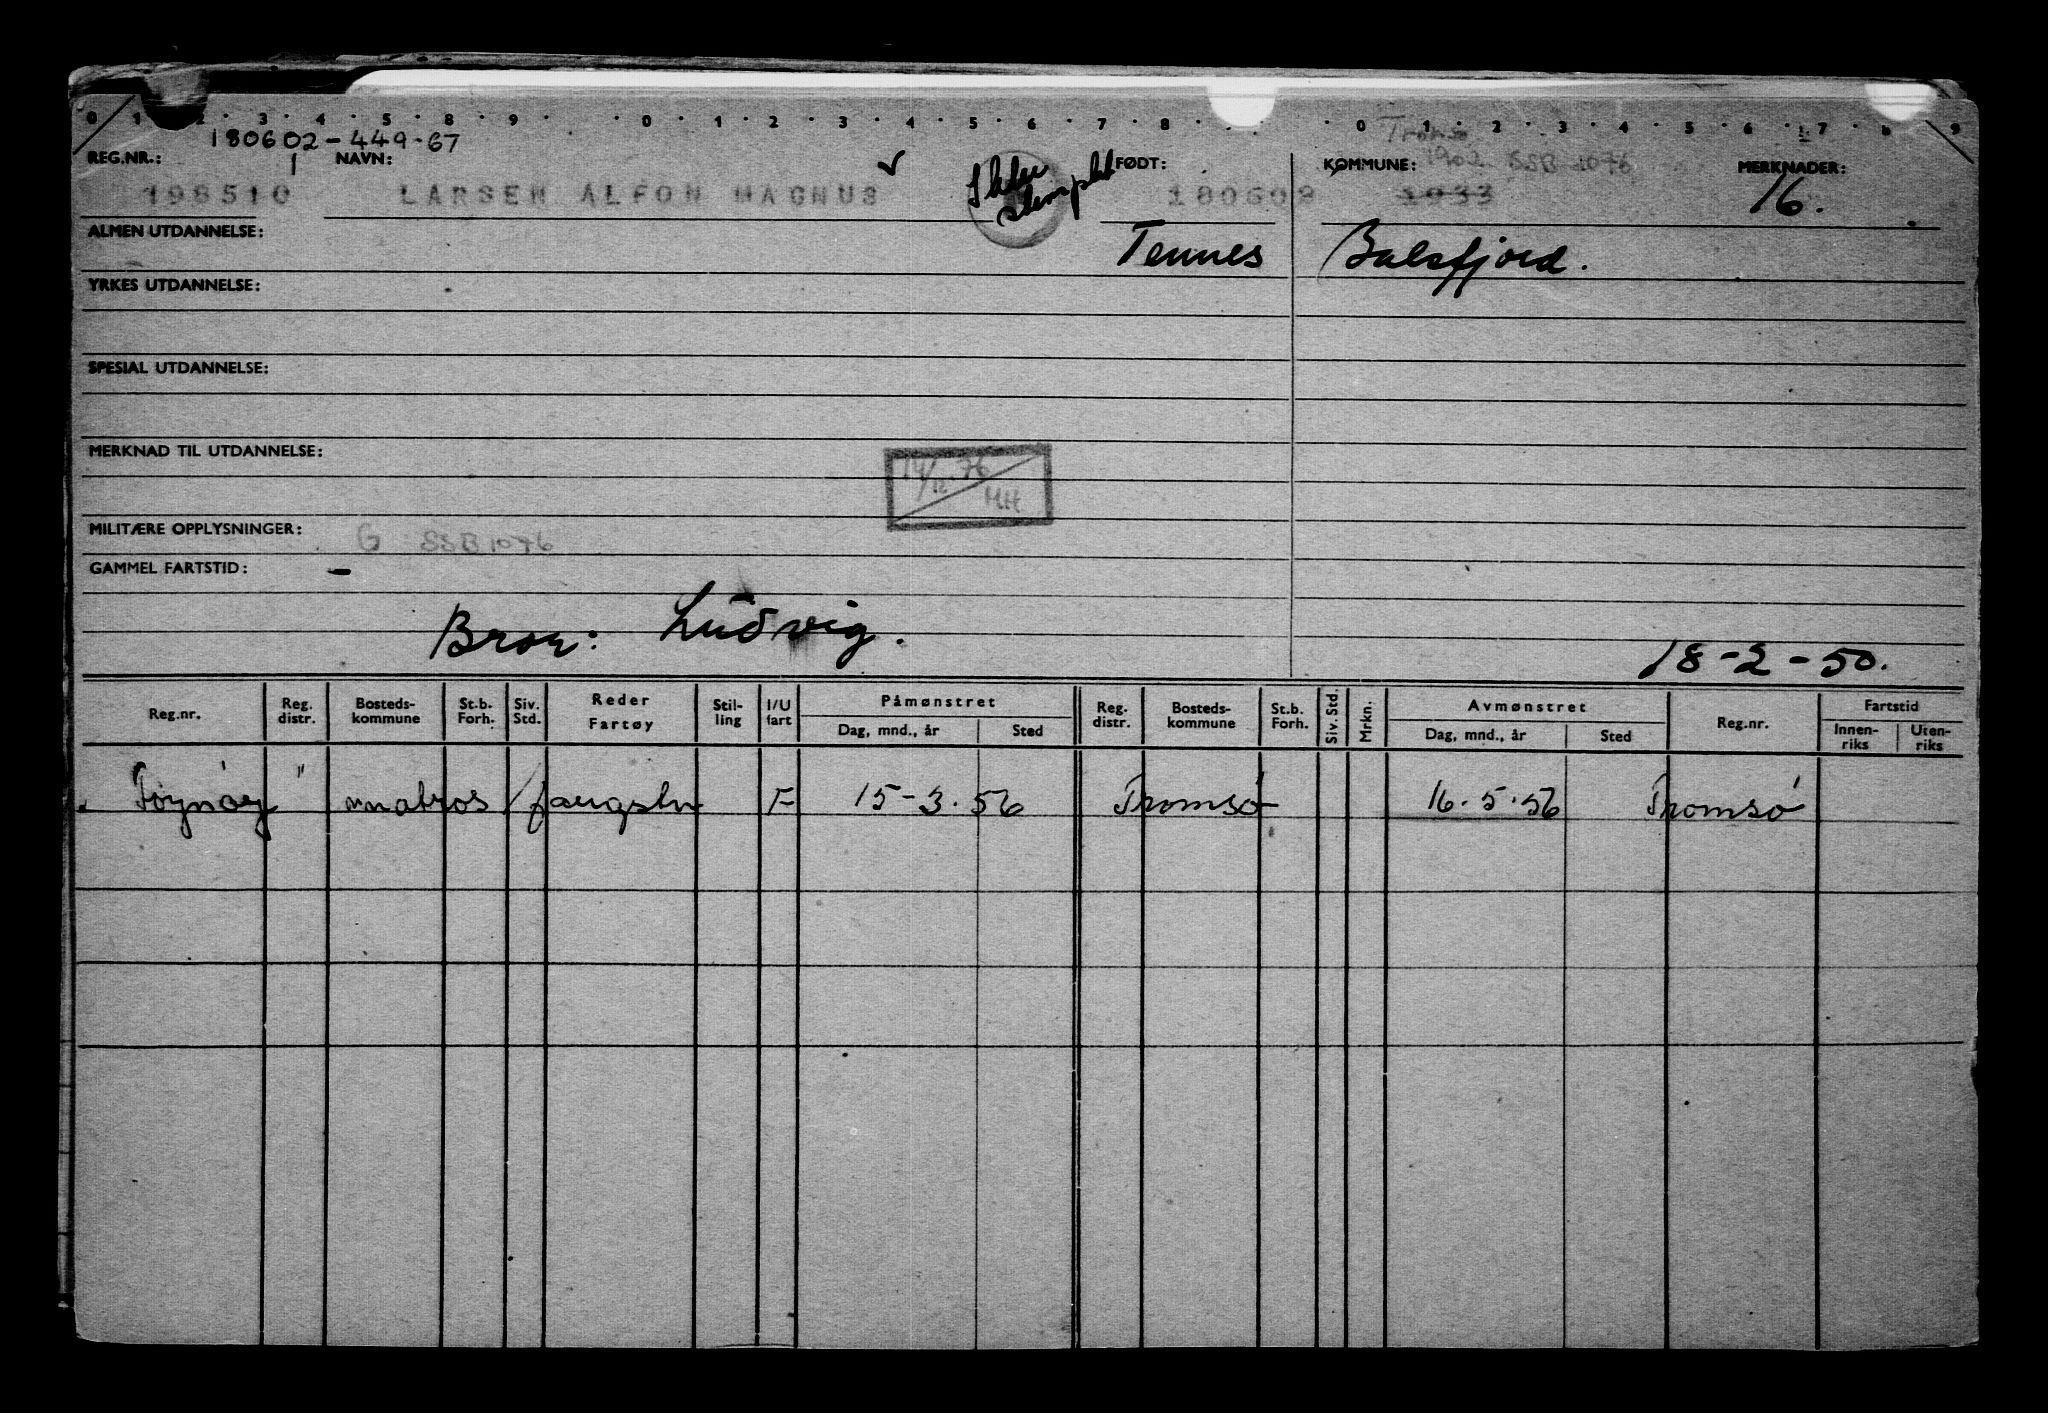 0 1 2 3 4 5 6 7 8 9 0 1 2 3 4 5 6 7 8 0 1 2 3 4 5 6 7 8 9
180602-449-67 Tromsø
REG.NR.: NAVN: FØDT: KOMMUNE: 1902 SSB 1076 MERKNADER:
198510 LARSEN ALFON MAGNUS 180602 1933 16.
ALMEN UTDANNELSE: Tennes Balsfjord.
YRKES UTDANNELSE:
SPESIAL UTDANNELSE:
MERKNAD TIL UTDANNELSE:
14/12.76
MH
MILITÆRE OPPLYSNINGER: G SSB 1076
GAMMEL FARTSTID: -
Bror: Ludvig.
18-2-50.
Reg.nr. Reg. distr. Bosteds-kommune St.b. Forh. Siv. Std. Reder Fartøy Stil-ling I/U fart Påmønstret Dag, mnd., år Sted Reg. distr. Bosteds-kommune St.b. Forh. Siv. Std. Mrkn. Avmønstret Dag, mnd., år Sted Reg.nr. Fartstid Innen-riks Uten-riks
"Føynøy" matros / fangstm F 15-3.56 Tromsø 16.5.56 Tromsø